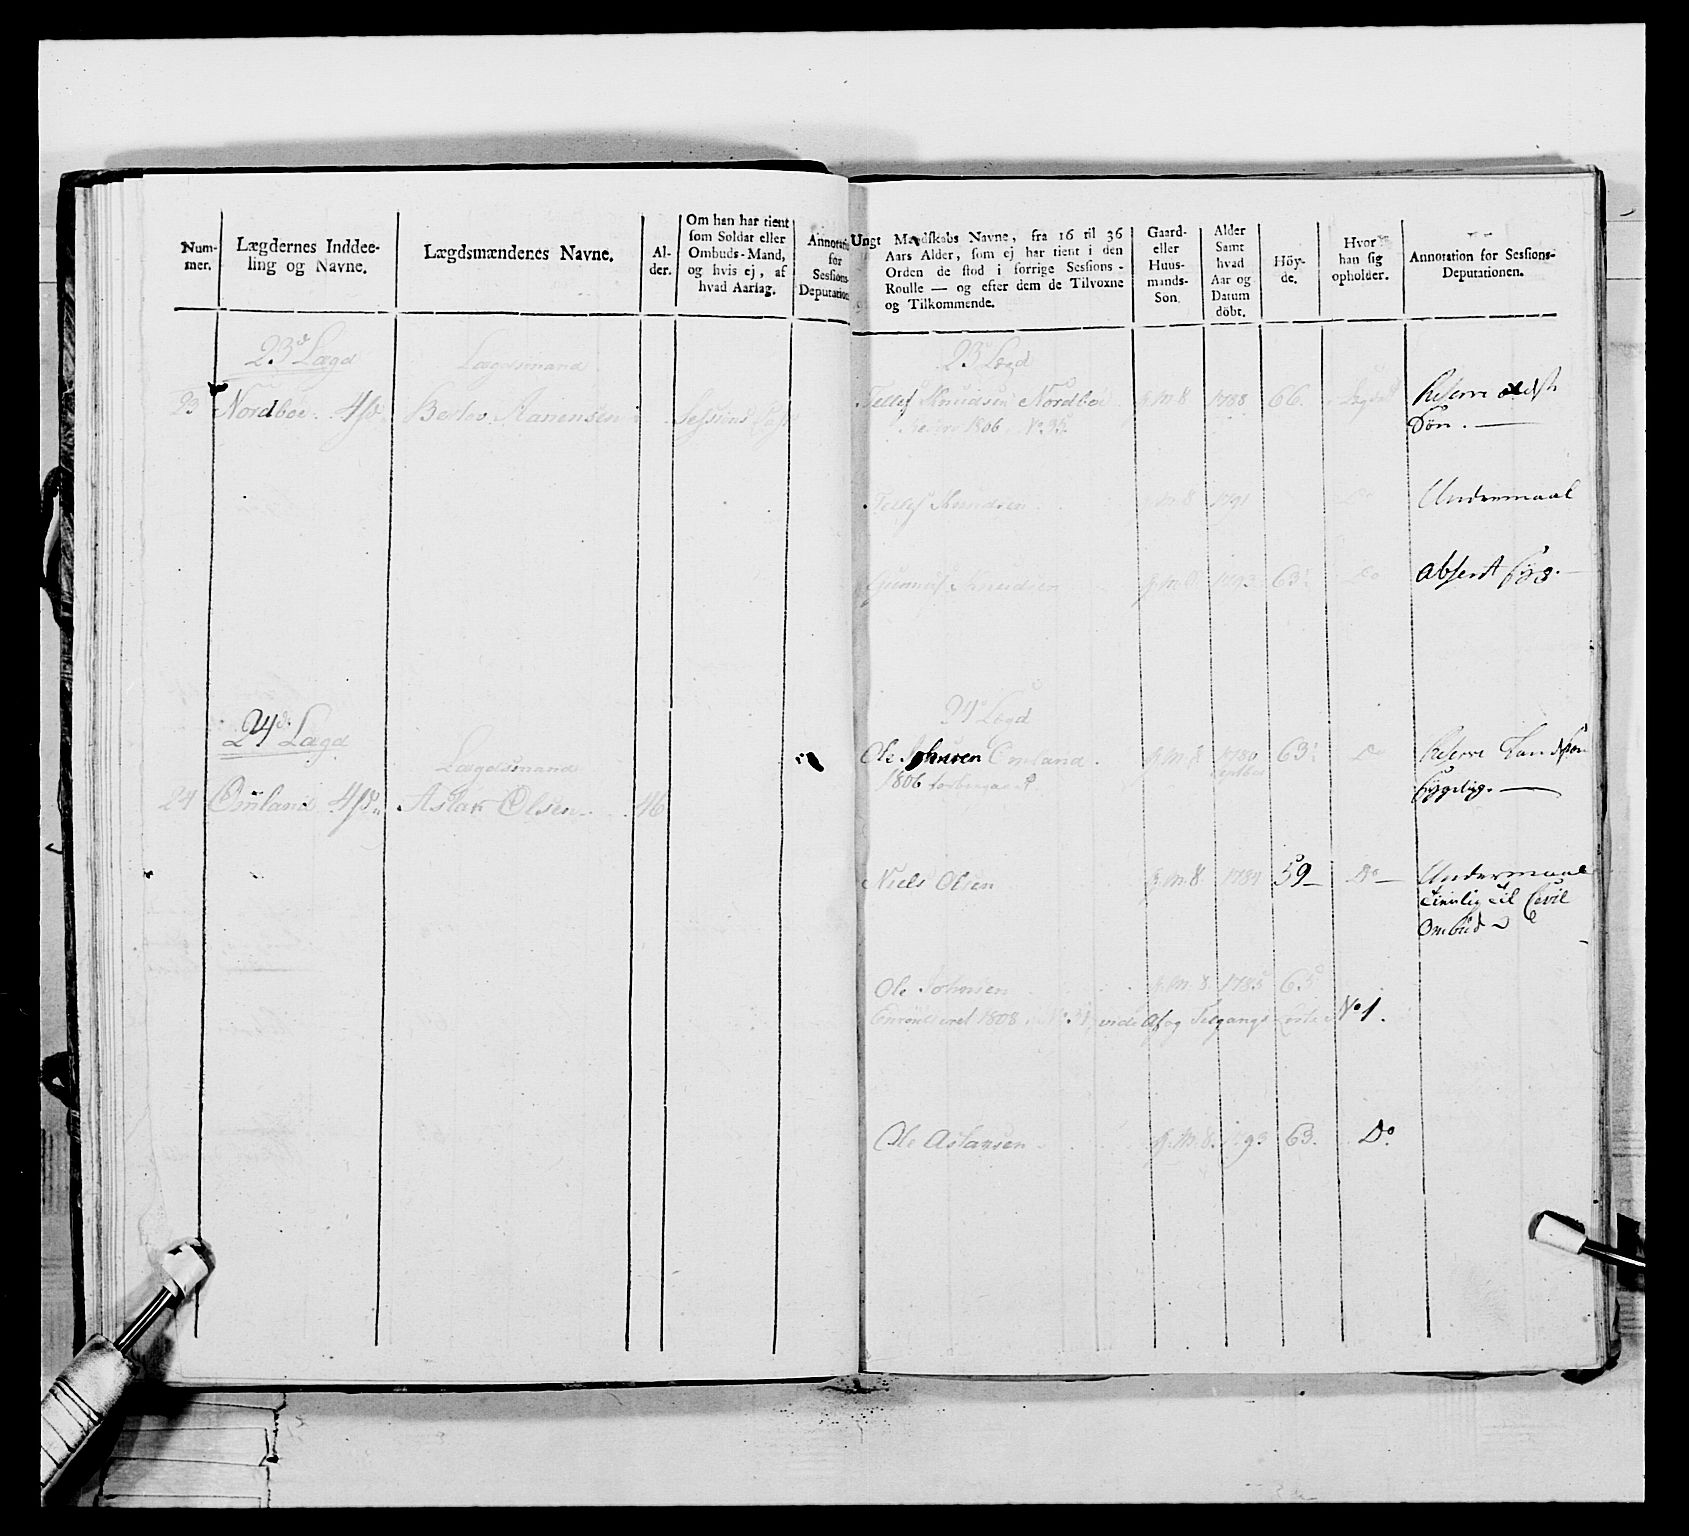 Num-
mer.
Lægdernes Inddee-
ling og Navne.
Lægdsmændenes Navne.
Al-
der.
Om han har tient
som Soldat eller
Ombuds-Mand,
og hvis ej, af
hvad Aarsag.
Annotation
for
Sessions-
Deputationen
23de Lægd
Lægdsmand
23 Nordboe 4/8 Aanensen Sessions
24de Lægd
Lægdsmand
24 Omland 4/8 Aslak Olsen 46
Ungt Mandskabs Navne, fra 16 til 36
Aars Alder, som ej har tient i den
Orden de stod i forrige Sessions-
Roulle — og efter dem de Tilvoxne
og Tilkommende.
Gaard-
eller
Huus-
mands-
Son.
Alder
Samt
hvad
Aar og
Datum
döbt.
Höy-
de.
Hvor
han sig
opholder.
Annotation for Sessions-
Deputationen.
23 Lægd
Tellef Knudsen Nordboe g.m.S 1788 66. Reserve
1806 No 35 Sön.
Tellef Knudsen g.m.S 1791 Do Undermaal
Gunnuf Knudsen g.m.S 1793 63 Do absent
24 Lægd
Ole Johnsen Omland g.m.S 1780 63 Do Reserve
1806
Niels Olsen g.m.S 1784 59 Do Undermaal
tienlig til Civil
Ombud
Ole Johnsen g.m.S. 1785 65
Enroulleret 1808 vide Af og Tilgangs Liste No 1.
Ole Aslaksen g.m.S. 1793 63. Do